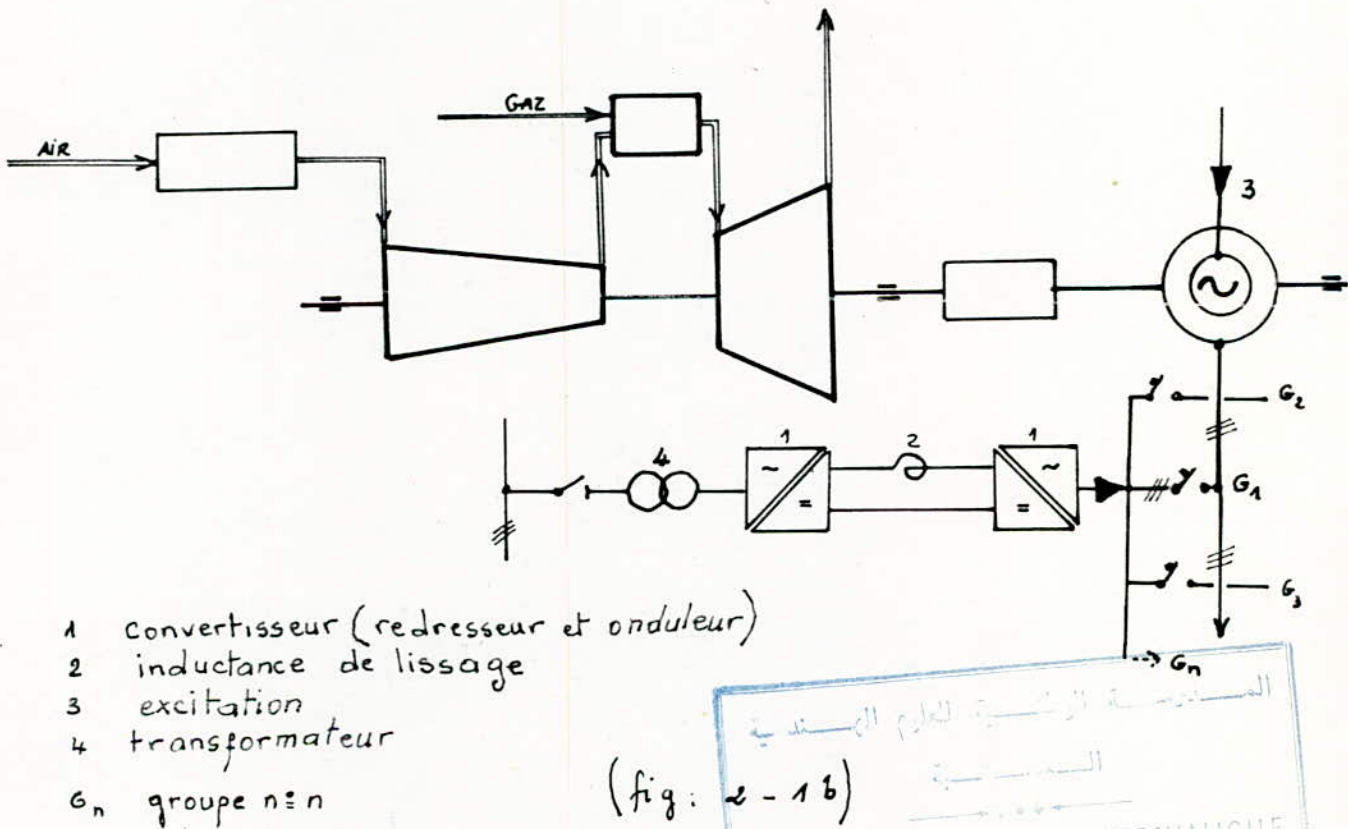 GAZ
AIR
3
~
G2
4
1
2
1
~
=
~
=
G1
G3
Gn
1 convertisseur (redresseur et onduleur)
2 inductance de lissage
3 excitation
4 transformateur
Gn groupe n° n
(fig : 2 - 1 b)